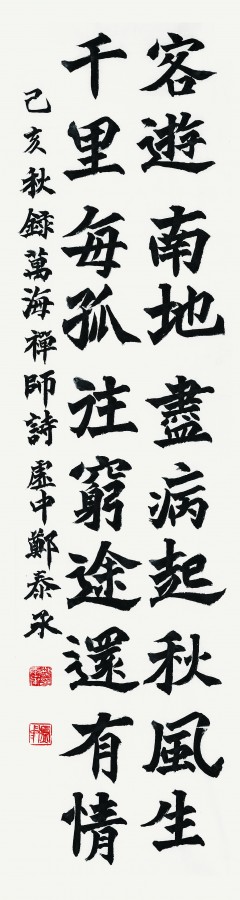 客遊南地盡病起秋風生
千里每孤往窮途還有情
己亥秋録萬海禪師詩 虛中鄭泰承